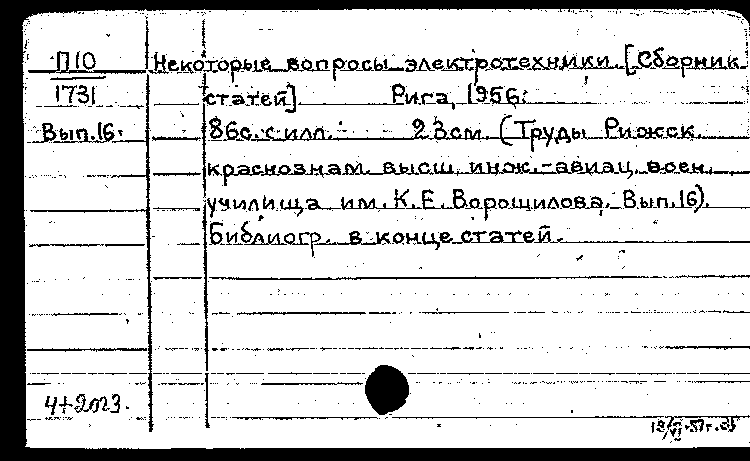 П10 Некоторые вопросы электротехники. [Сборник
1731 статей]. Рига, 1956.
Вып.16. 86с. с илл. 23см. (Труды Рижск.
краснознам. высш. инж.-авиац. воен.
училища им. К.Е. Ворошилова. Вып.16).
Библиогр. в конце статей.